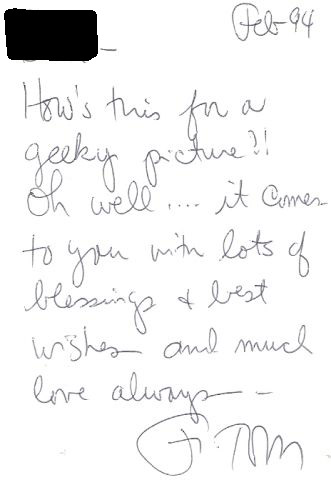 Feb 94
How's this for a
geeky picture?!
Oh well.... it comes
to you with lots of
blessings & best
wishes and much
love always -
F. Tom